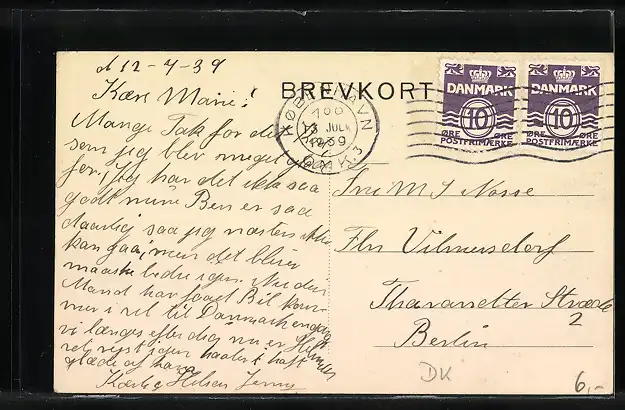 d 12-7-39
Kære Marie!
Mange Tak for dit
som jeg blev meget glad
for, jeg har det ikke saa
godt mine Ben er saa
daarlig saa jeg næsten ikke
kan gaa, men det bliver
maaske bedre igen. Nu din
Mand har faaet Bil kom
mer i vel til Danmark engang
vi længes efter dig nu er
rejst igen
glade
Kærlig Hilsen Jenny
BREVKORT
KØBENHAVN
13 JUL
1939
OMK. 3
DANMARK
10
ØRE ØRE
POSTFRIMÆRKE
DANMARK
10
ØRE ØRE
POSTFRIMÆRKE
Fru M S
Vilmersdorf
Tharanetter Stræde
2
Berlin
DK
6,-